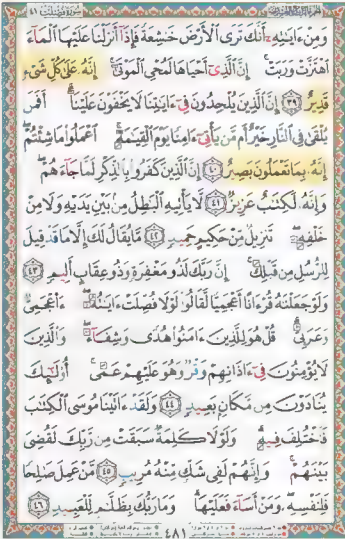 وَمِنْ ءَايَٰتِهِۦٓ أَنَّكَ تَرَى ٱلْأَرْضَ خَٰشِعَةً فَإِذَآ أَنزَلْنَا عَلَيْهَا ٱلْمَآءَ
ٱهْتَزَّتْ وَرَبَتْ ۚ إِنَّ ٱلَّذِىٓ أَحْيَاهَا لَمُحْىِ ٱلْمَوْتَىٰٓ ۚ إِنَّهُۥ عَلَىٰ كُلِّ شَىْءٍ
قَدِيرٌ ٣٩ إِنَّ ٱلَّذِينَ يُلْحِدُونَ فِىٓ ءَايَٰتِنَا لَا يَخْفَوْنَ عَلَيْنَآ ۗ أَفَمَن
يُلْقَىٰ فِى ٱلنَّارِ خَيْرٌ أَم مَّن يَأْتِىٓ ءَامِنًا يَوْمَ ٱلْقِيَٰمَةِ ۚ ٱعْمَلُوا۟ مَا شِئْتُمْ ۖ
إِنَّهُۥ بِمَا تَعْمَلُونَ بَصِيرٌ ٤٠ إِنَّ ٱلَّذِينَ كَفَرُوا۟ بِٱلذِّكْرِ لَمَّا جَآءَهُمْ ۖ
وَإِنَّهُۥ لَكِتَٰبٌ عَزِيزٌ ٤١ لَّا يَأْتِيهِ ٱلْبَٰطِلُ مِنۢ بَيْنِ يَدَيْهِ وَلَا مِنْ
خَلْفِهِۦ ۖ تَنزِيلٌ مِّنْ حَكِيمٍ حَمِيدٍ ٤٢ مَّا يُقَالُ لَكَ إِلَّا مَا قَدْ قِيلَ
لِلرُّسُلِ مِن قَبْلِكَ ۚ إِنَّ رَبَّكَ لَذُو مَغْفِرَةٍ وَذُو عِقَابٍ أَلِيمٍ ٤٣
وَلَوْ جَعَلْنَٰهُ قُرْءَانًا أَعْجَمِيًّا لَّقَالُوا۟ لَوْلَا فُصِّلَتْ ءَايَٰتُهُۥٓ ۖ ءَا۬عْجَمِىٌّ
وَعَرَبِىٌّ ۗ قُلْ هُوَ لِلَّذِينَ ءَامَنُوا۟ هُدًى وَشِفَآءٌ ۖ وَٱلَّذِينَ
لَا يُؤْمِنُونَ فِىٓ ءَاذَانِهِمْ وَقْرٌ وَهُوَ عَلَيْهِمْ عَمًى ۚ أُو۟لَٰٓئِكَ
يُنَادَوْنَ مِن مَّكَانٍۭ بَعِيدٍ ٤٤ وَلَقَدْ ءَاتَيْنَا مُوسَى ٱلْكِتَٰبَ
فَٱخْتُلِفَ فِيهِ ۗ وَلَوْلَا كَلِمَةٌ سَبَقَتْ مِن رَّبِّكَ لَقُضِىَ
بَيْنَهُمْ ۚ وَإِنَّهُمْ لَفِى شَكٍّ مِّنْهُ مُرِيبٍ ٤٥ مَّنْ عَمِلَ صَٰلِحًا
فَلِنَفْسِهِۦ ۖ وَمَنْ أَسَآءَ فَعَلَيْهَا ۗ وَمَا رَبُّكَ بِظَلَّٰمٍ لِّلْعَبِيدِ ٤٦
٤٨١